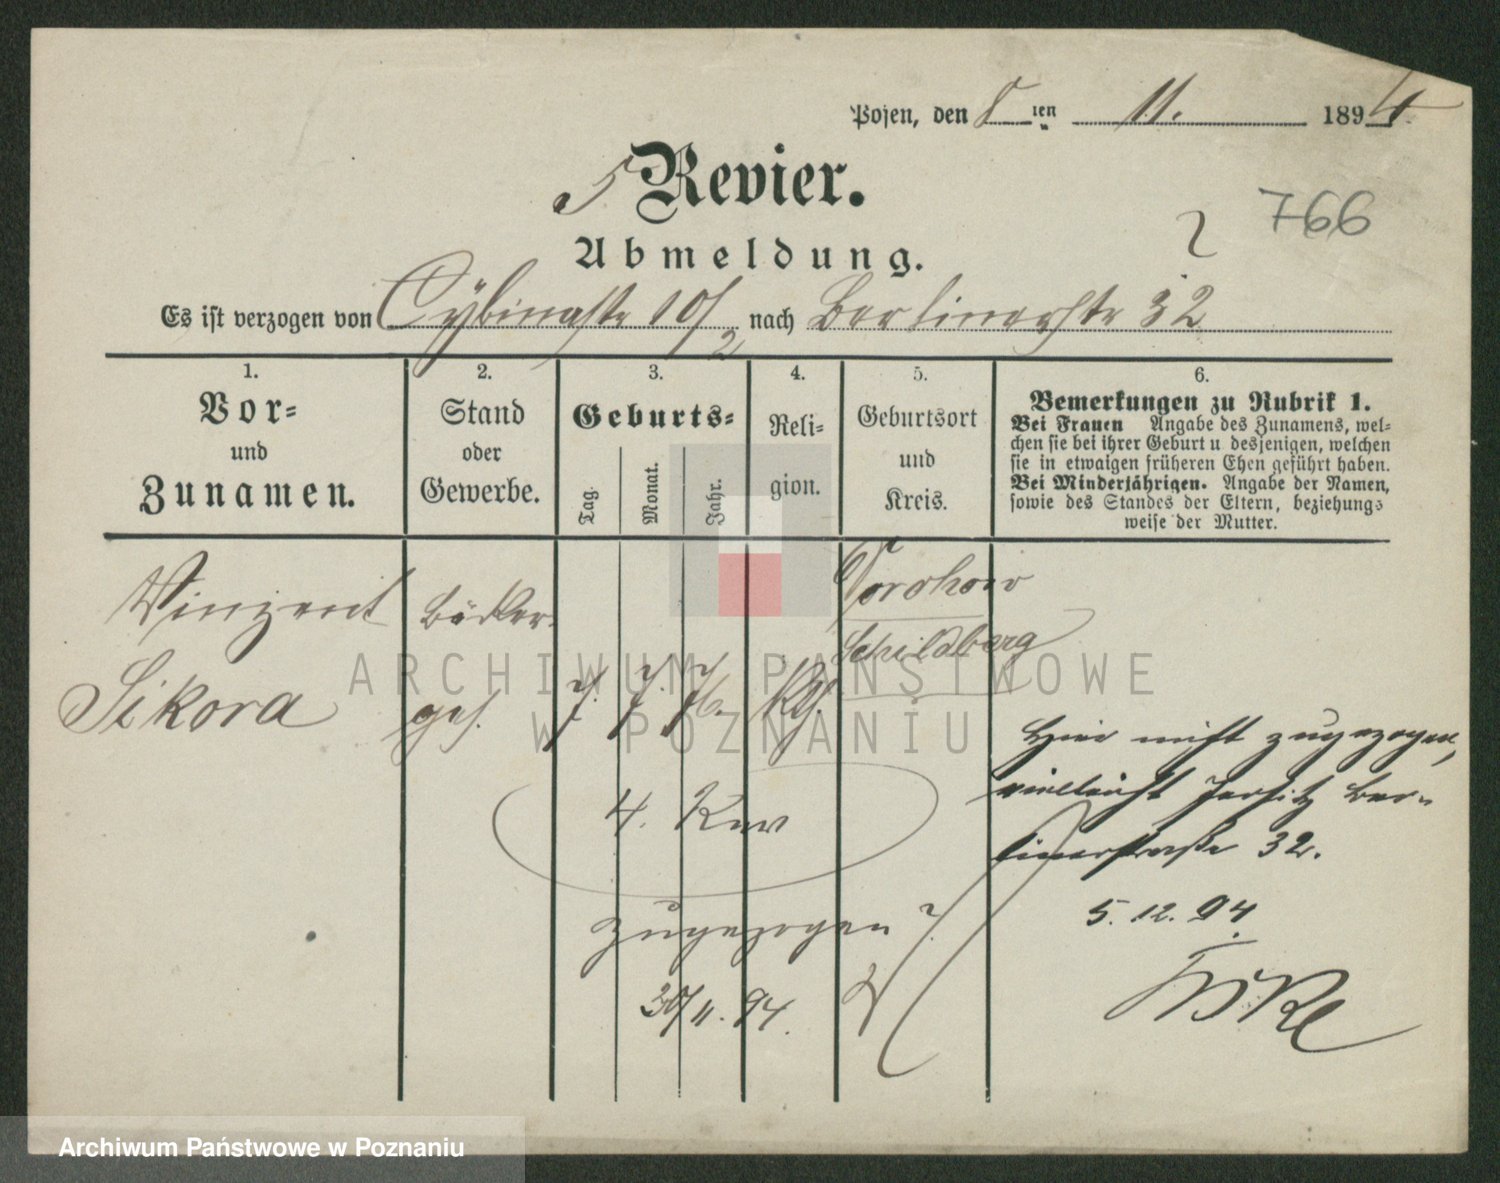 Posen, den 8 ten 11. 1894.
5 Revier.
766
Abmeldung.
Es ist verzogen von Cybinastr 10/2 nach Berlinerstr 32
1.
Vor-
und
Zunamen.
2.
Stand
oder
Gewerbe.
3.
Geburts-
Tag.
Monat.
Jahr.
4.
Reli-
gion.
5.
Geburtsort
und
Kreis.
6.
Bemerkungen zu Rubrik 1.
Bei Frauen Angabe des Zunamens, wel-
chen sie bei ihrer Geburt u desjenigen, welchen
sie in etwaigen früheren Ehen geführt haben.
Bei Minderjährigen. Angabe der Namen,
sowie des Standes der Eltern, beziehungs
weise der Mutter.
Vinzent
Sikora
Bäcker-
ges.
7. 7. 76.
Kth.
Schildberg
4. Rev
zugezogen?
30/11. 94.
Hier nicht zugezogen,
vielleicht Jersitz Ber-
linerstraße 32.
5. 12. 94.
ARCHIWUM PAŃSTWOWE
W POZNANIU
Archiwum Państwowe w Poznaniu